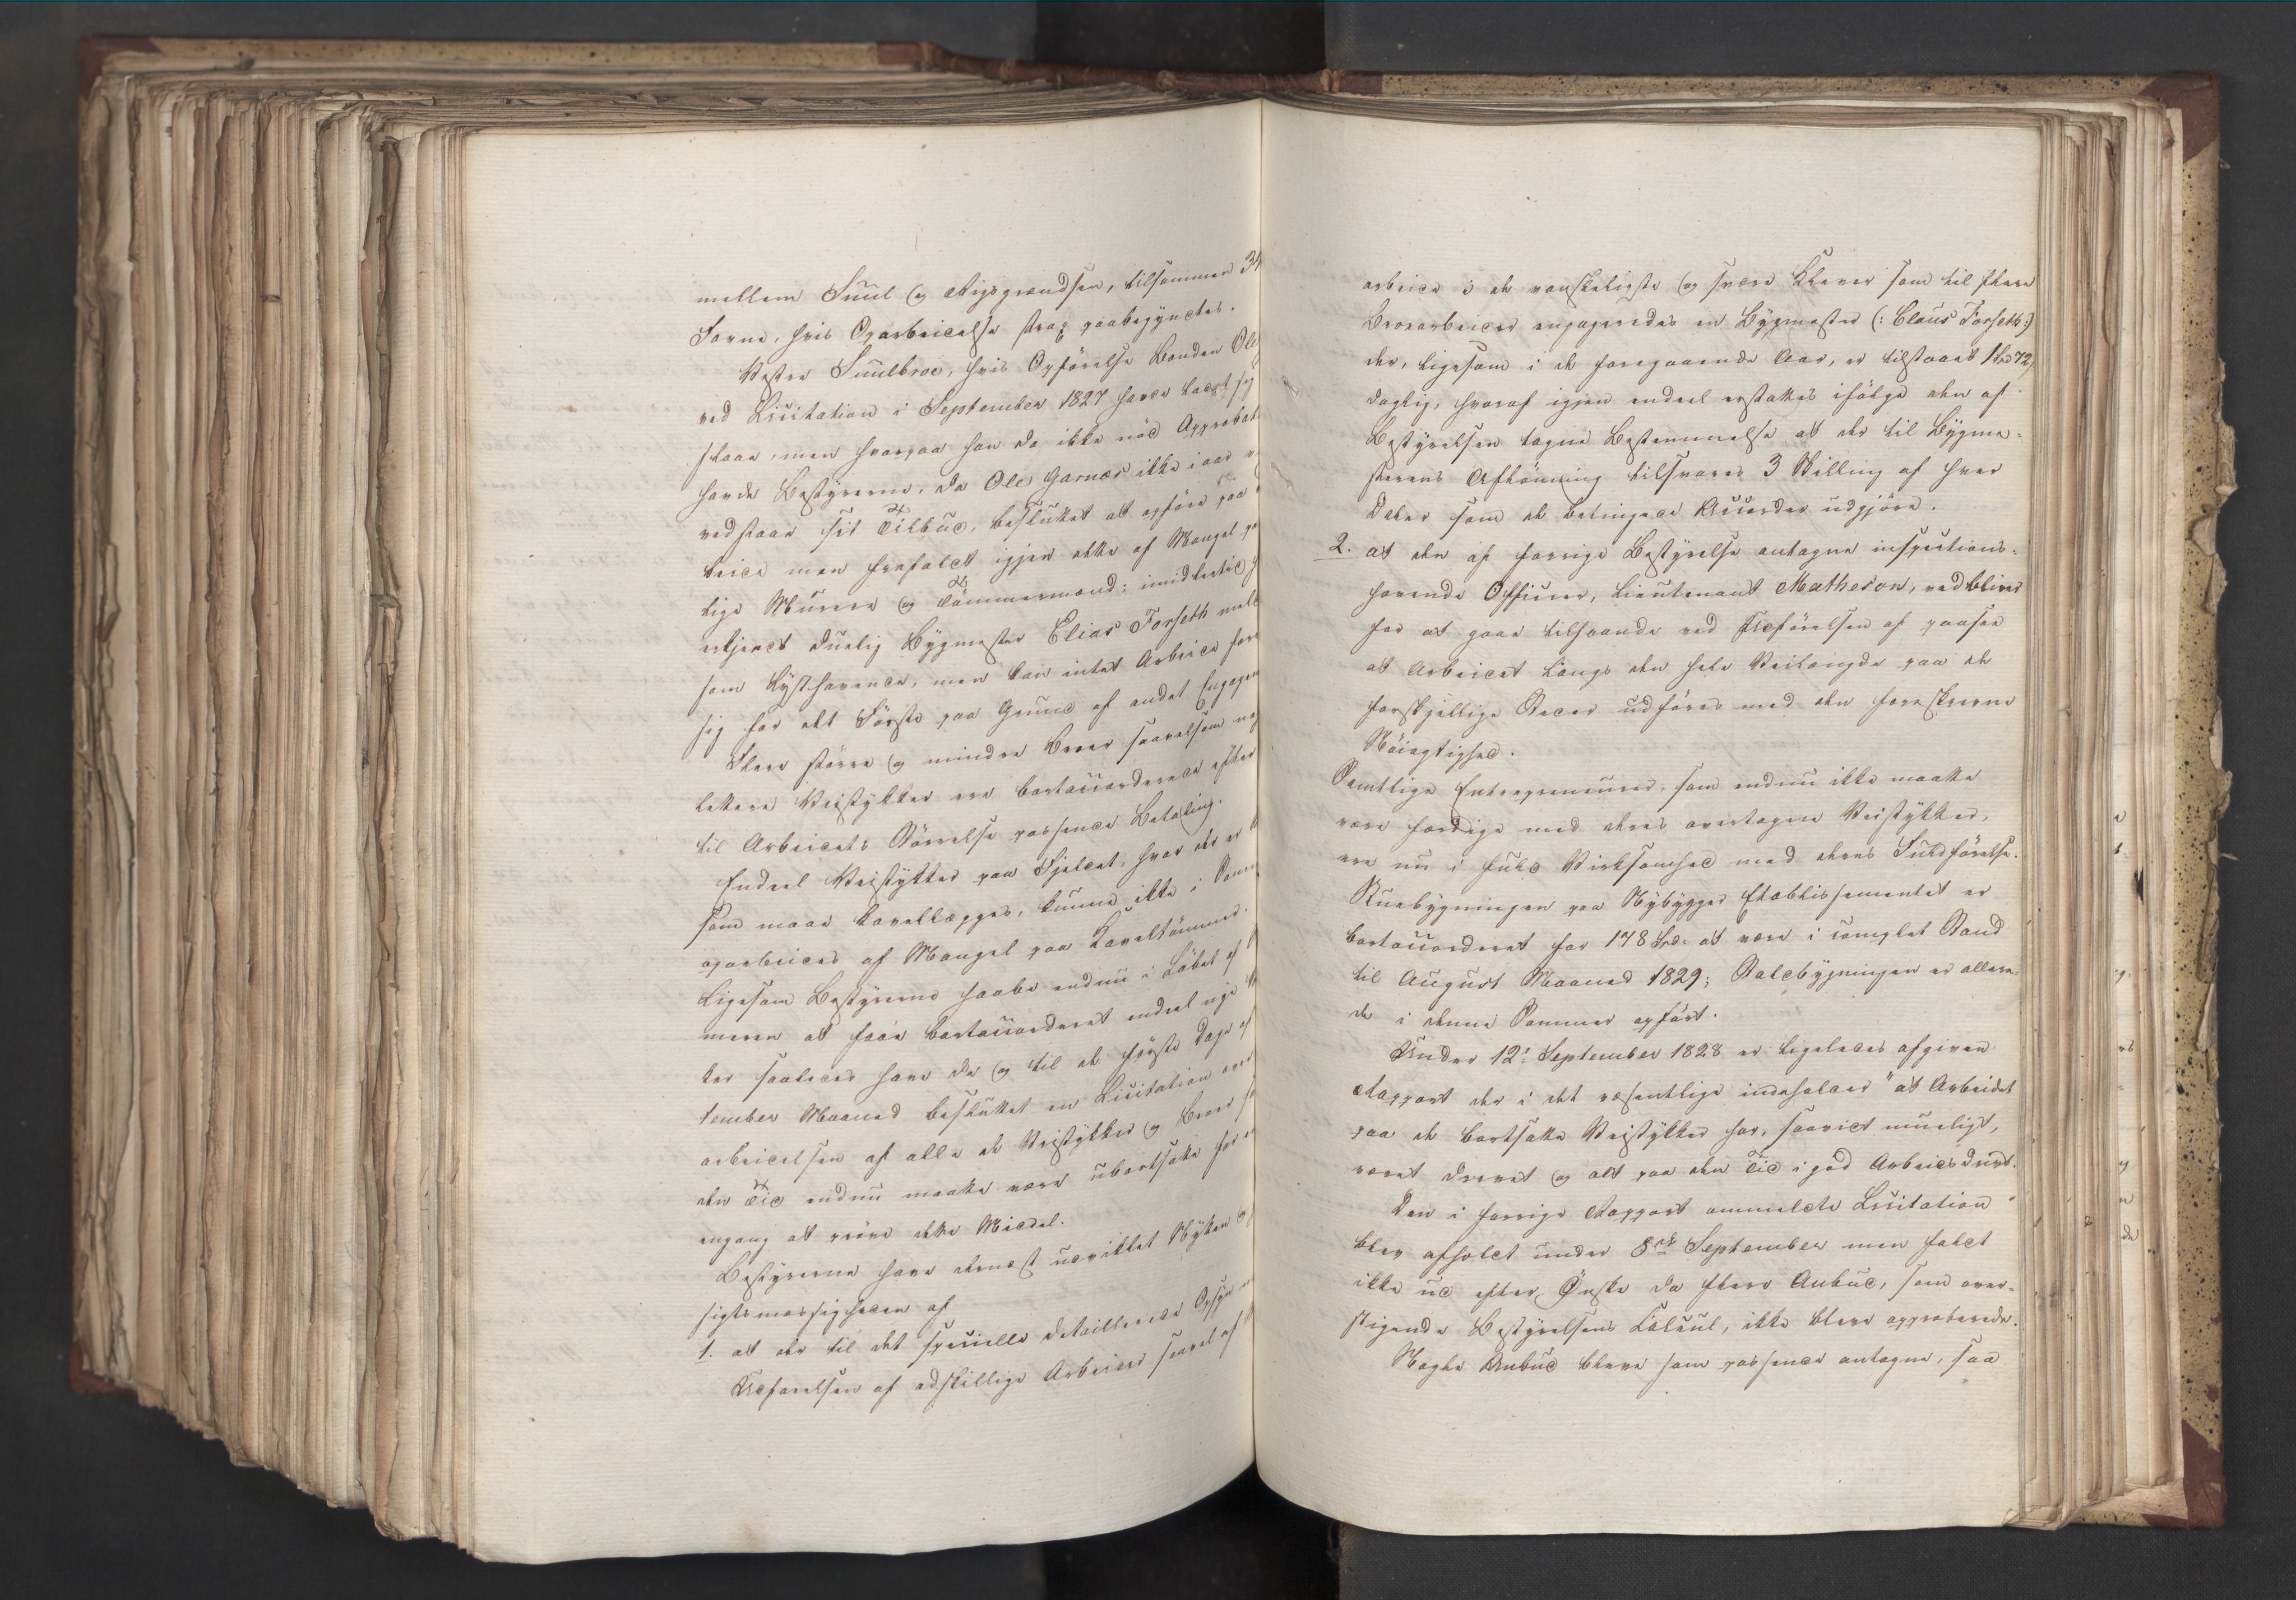 mellem Suul og Rigsgrændsen, tilsammen 34
Favne, hvis Oparbeidelse strax paabegyndtes.
Vestre Suulbroe, hvis Opförelse Bonden Ole
ved Licitation i September 1827 havde budt sig
staae, men hvorpaa han da ikke nöd Approbat
havde Bestyrerne, da Ole Garnæs ikke i aar
vedstaae sit Tilbud, besluttet at opföre paa
beide men frafaldt igjen dette af Mangel paa
lige Murere og Tömmermænd; imidlertid
erkjendt duelig Bygmester Elias Forseth meldt
som Lysthavende, men kan intet Arbeide fore
sig for det Förste paa Grund af andet Engagem
Flere större og mindre Broer saavelsom
lettere Veistykker ere bortaccorderede efter
til Arbeidets Störrelse passende Betaling.
Endeel Veistykker paa Fjeldet, hvor der er
som maae kavellægges, kunne ikke i Somm
oparbeides af Mangel paa Kaveltömmer.
Ligesom Bestyrerne haabe endnu i Löbet af
meren at faae bortaccorderet endeel nye
ker saaledes have de og til de förste Dage af
tember Maaned besluttet en Licitation over
arbeidelsen af alle de Veistykker og Broer
den Tid endnu maatte være ubortsatte for
engang at pröve dette Middel.
Bestyrerne have dernæst udviklet Nytten og
sigtsmæssigheden af
1. at der til det specielle detaillerede Opsyn
Udförelsen af adskillige Arbeider saavel af
arbeide i de vanskeligste og svære Klever som til flere
Broearbeider engageredes en Bygmester (: Claus Forseth:)
der, ligesom i de foregaaende Aar, er tilstaaet 1 Spd 72
daglig, hvoraf igjen endeel erstattes ifölge den af
Bestyrelsen tagne Bestemmelse at der til Bygme-
sterens Aflönning tilsvares 3 Skilling af hver
Daler som de betingede Accorder udgjöre.
2. at den af forrige Bestyrelse antagne inspections-
havende Officier, Lieutenant Matheson, vedbliver
for at gaae tilhaande ved Udförelsen af paasee
at Arbeidet langs den hele Veilængde paa de
forskjellige Steder udföres med den foreskrevne
Nöiagtighed.
Samtlige Entrepreneurer, som endnu ikke maatte
være færdige med deres overtagne Veistykker,
ere nu i fuld Virksomhed med deres Fuldförelse.
Stuebygningen paa Nybygger Etablissementet er
bortaccorderet for 178 Spd. at være i complet Stand
til August Maaned 1829; Staldbygningen er allere-
de i denne Sommer opfört.
Under 12te September 1828 er ligeledes afgiven
Rapport der i det væsentlige indeholder "at Arbeidet
paa de bortsatte Veistykker har, saavidt mueligt,
været drevet og alt paa den Tid i god Arbeidsdrivt.
Den i forrige Rapport ommeldte Licitation
blev afholdt under 8de September men faldt
ikke ud efter Önske da flere Anbud, som over-
stigende Bestyrelsens Calcul, ikke bleve approberede.
Nogle Anbud bleve som passende antagne, saa